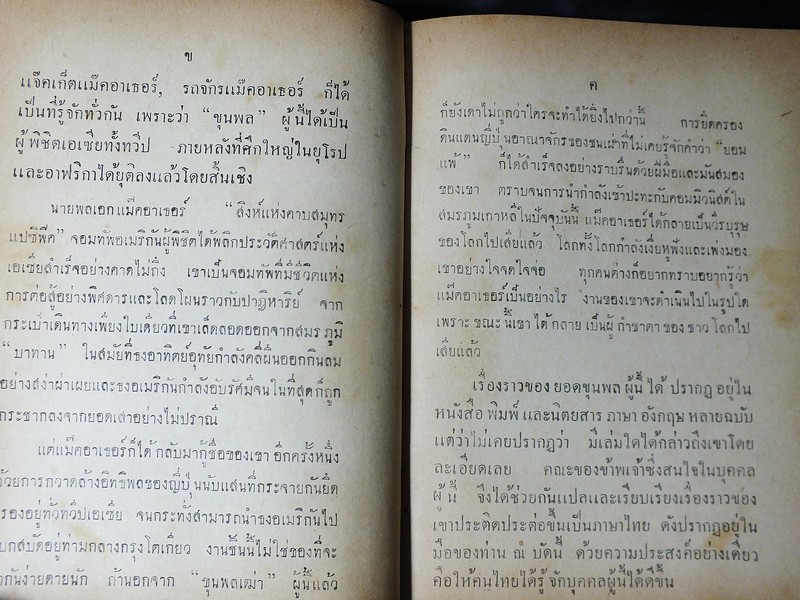 ข
แจ๊คเก็ตแม๊คอาเธอร์, รถจักรแม๊คอาเธอร์ ก็ได้
เป็นที่รู้จักทั่วกัน เพราะว่า “ขุนพล” ผู้นี้ได้เป็น
ผู้พิชิตเอเซียทั้งทวีป ภายหลังที่ศึกใหญ่ในยุโรป
และอาฟริกาได้ยุติลงแล้วโดยสิ้นเชิง
นายพลเอกแม๊คอาเธอร์ “สิงห์แห่งคาบสมุทร
แปซิฟิค” จอมทัพอเมริกันผู้พิชิตได้พลิกประวัติศาสตร์แห่ง
เอเซียสำเร็จอย่างคาดไม่ถึง เขาเป็นจอมทัพที่มีชีวิตแห่ง
การต่อสู้อย่างพิศดารและโลดโผนราวกับปาฏิหาริย์ จาก
กระเป๋าเดินทางเพียงใบเดียวที่เขาเล็ดลอดออกจากสมรภูมิ
“บาทาน” ในสมัยที่ธงอาทิตย์อุทัยกำลังคลี่ผืนออกกินลม
อย่างสง่าผ่าเผยและธงอเมริกันกำลังอับรัศมีจนในที่สุดก็ถูก
กระชากลงจากยอดเสาอย่างไม่ปราณี
แต่แม๊คอาเธอร์ก็ได้กลับมากู้ชื่อของเขาอีกครั้งหนึ่ง
ด้วยการกวาดล้างอิทธิพลของญี่ปุ่นนับแสนที่กระจายกันยึด
รองอยู่ทั่วทวีปเอเซีย จนกระทั่งสามารถนำธงอเมริกันไป
บกสบัดอยู่ท่ามกลางกรุงโตเกียว งานชิ้นนี้ไม่ใช่ของที่จะ
กันง่ายดายนัก ถ้านอกจาก “ขุนพลเฒ่า” ผู้นี้แล้ว
ค
ก็ยังเดาไม่ถูกว่าใครจะทำได้ยิ่งไปกว่านี้ การยึดครอง
ดินแดนญี่ปุ่นอาณาจักรของชนเผ่าที่ไม่เคยรู้จักคำว่า “ยอม
แพ้” ก็ได้สำเร็จลงอย่างราบรื่นด้วยฝีมือและมันสมอง
ของเขา ตราบจนการนำกำลังเข้าปะทะกับคอมมิวนิสต์ใน
สมรภูมเกาหลีในปัจจุบันนี้ แม๊คอาเธอร์ได้กลายเป็นวีรบุรุษ
ของโลกไปเสียแล้ว โลกทั้งโลกกำลังเงี่ยหูฟังและเพ่งมอง
เขาอย่างใจจดใจจ่อ ทุกคนต่างก็อยากทราบอยากรู้ว่า
แม๊คอาเธอร์เป็นอย่างไร งานของเขาจะดำเนินไปในรูปใด
เพราะขณะนี้เขาได้กลายเป็นผู้กำชาตาของชาวโลกไป
เสียแล้ว
เรื่องราวของยอดขุนพลผู้นี้ได้ปรากฏอยู่ใน
หนังสือพิมพ์และนิตยสารภาษาอังกฤษหลายฉบับ
แต่ว่าไม่เคยปรากฏว่า มีเล่มใดได้กล่าวถึงเขาโดย
ละเอียดเลย คณะของข้าพเจ้าซึ่งสนใจในบุคคล
ผู้นี้ จึงได้ช่วยกันแปลและเรียบเรียงเรื่องราวของ
เขาประติดประต่อขึ้นเป็นภาษาไทย ดังปรากฏอยู่ใน
มือของท่าน ณ บัดนี้ ด้วยความประสงค์อย่างเดียว
คือให้คนไทยได้รู้จักบุคคลผู้นี้ได้ดีขึ้น